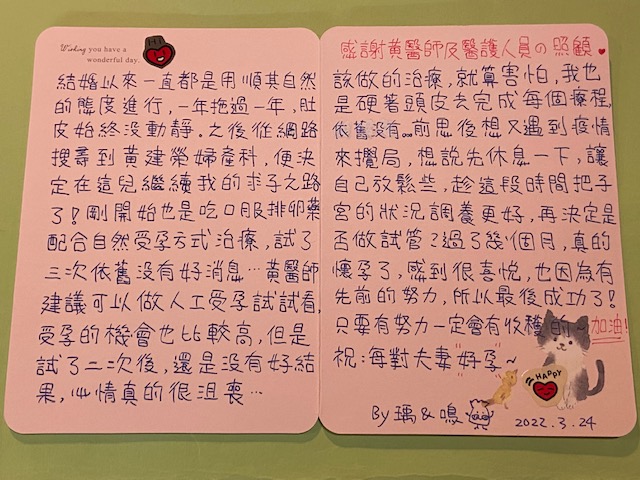 Wishing you have a
wonderful day.
Hi
結婚以來一直都是用順其自然
的態度進行，一年拖過一年，肚
皮始終沒動靜。之後從網路
搜尋到黃建榮婦產科，便決
定在這兒繼續我的求子之路
了！剛開始也是吃口服排卵藥
配合自然受孕方式治療，試了
三次依舊沒有好消息…黃醫師
建議可以做人工受孕試試看，
受孕的機會也比較高，但是
試了二次後，還是沒有好結
果，心情真的很沮喪…
感謝黃醫師及醫護人員の照顧
該做的治療，就算害怕，我也
是硬著頭皮去完成每個療程，
依舊沒有…前思後想又遇到疫情
來攪局，想說先休息一下，讓
自己放鬆些，趁這段時間把子
宮的狀況調養更好，再決定是
否做試管？過了幾個月，真的
懷孕了，感到很喜悅，也因為有
先前的努力，所以最後成功了！
只要有努力一定會有收穫的~加油！
祝：每對夫妻"好孕"~
HAPPY
By 瑀&鳴
2022.3.24